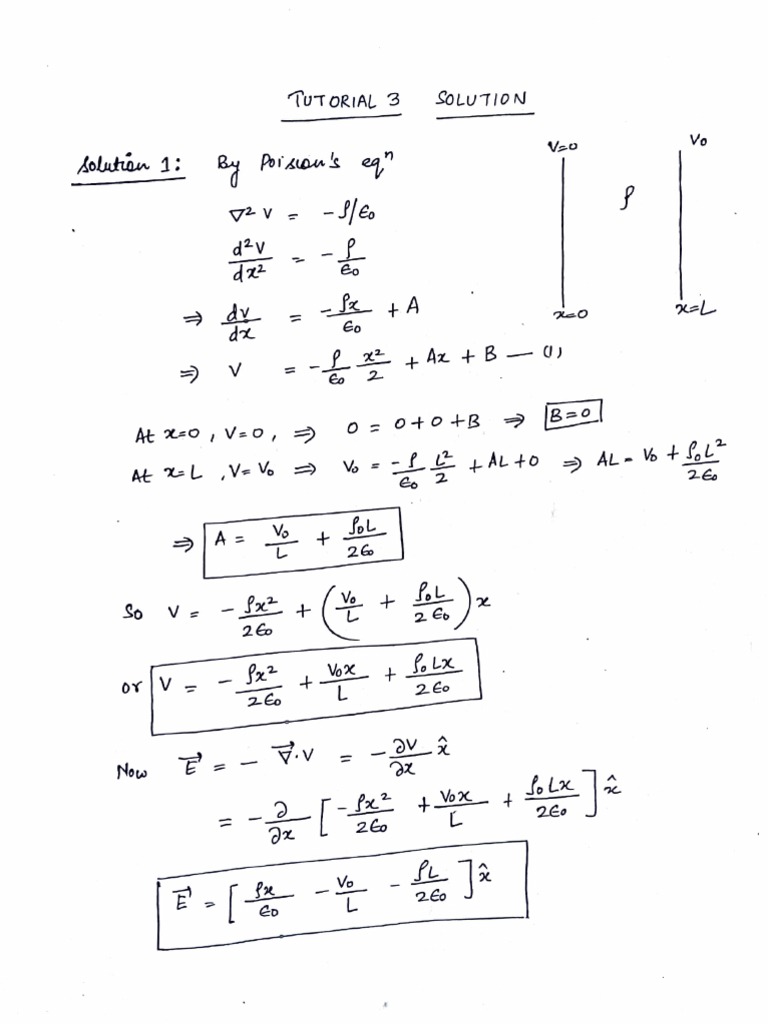 TUTORIAL 3 SOLUTION
Solution 1: By Poission's eqⁿ
V=0 V₀
ρ
x=0 x=L
∇² V = -ρ/ε₀
d²V/dx² = -ρ/ε₀
⇒ dv/dx = -ρx/ε₀ + A
⇒ V = -ρ/ε₀ x²/2 + Ax + B — (1)
At x=0, V=0, ⇒ 0 = 0+0+B ⇒ B=0
At x=L, V=V₀ ⇒ V₀ = -ρ/ε₀ L²/2 + AL+0 ⇒ AL = V₀ + ρ₀L²/2ε₀
⇒ A = V₀/L + ρ₀L/2ε₀
So V = -ρx²/2ε₀ + (V₀/L + ρ₀L/2ε₀)x
or V = -ρx²/2ε₀ + V₀x/L + ρ₀Lx/2ε₀
Now E⃗ = -∇⃗.V = -∂V/∂x x̂
= -∂/∂x [-ρx²/2ε₀ + V₀x/L + ρ₀Lx/2ε₀] x̂
E⃗ = [ρx/ε₀ - V₀/L - ρL/2ε₀] x̂